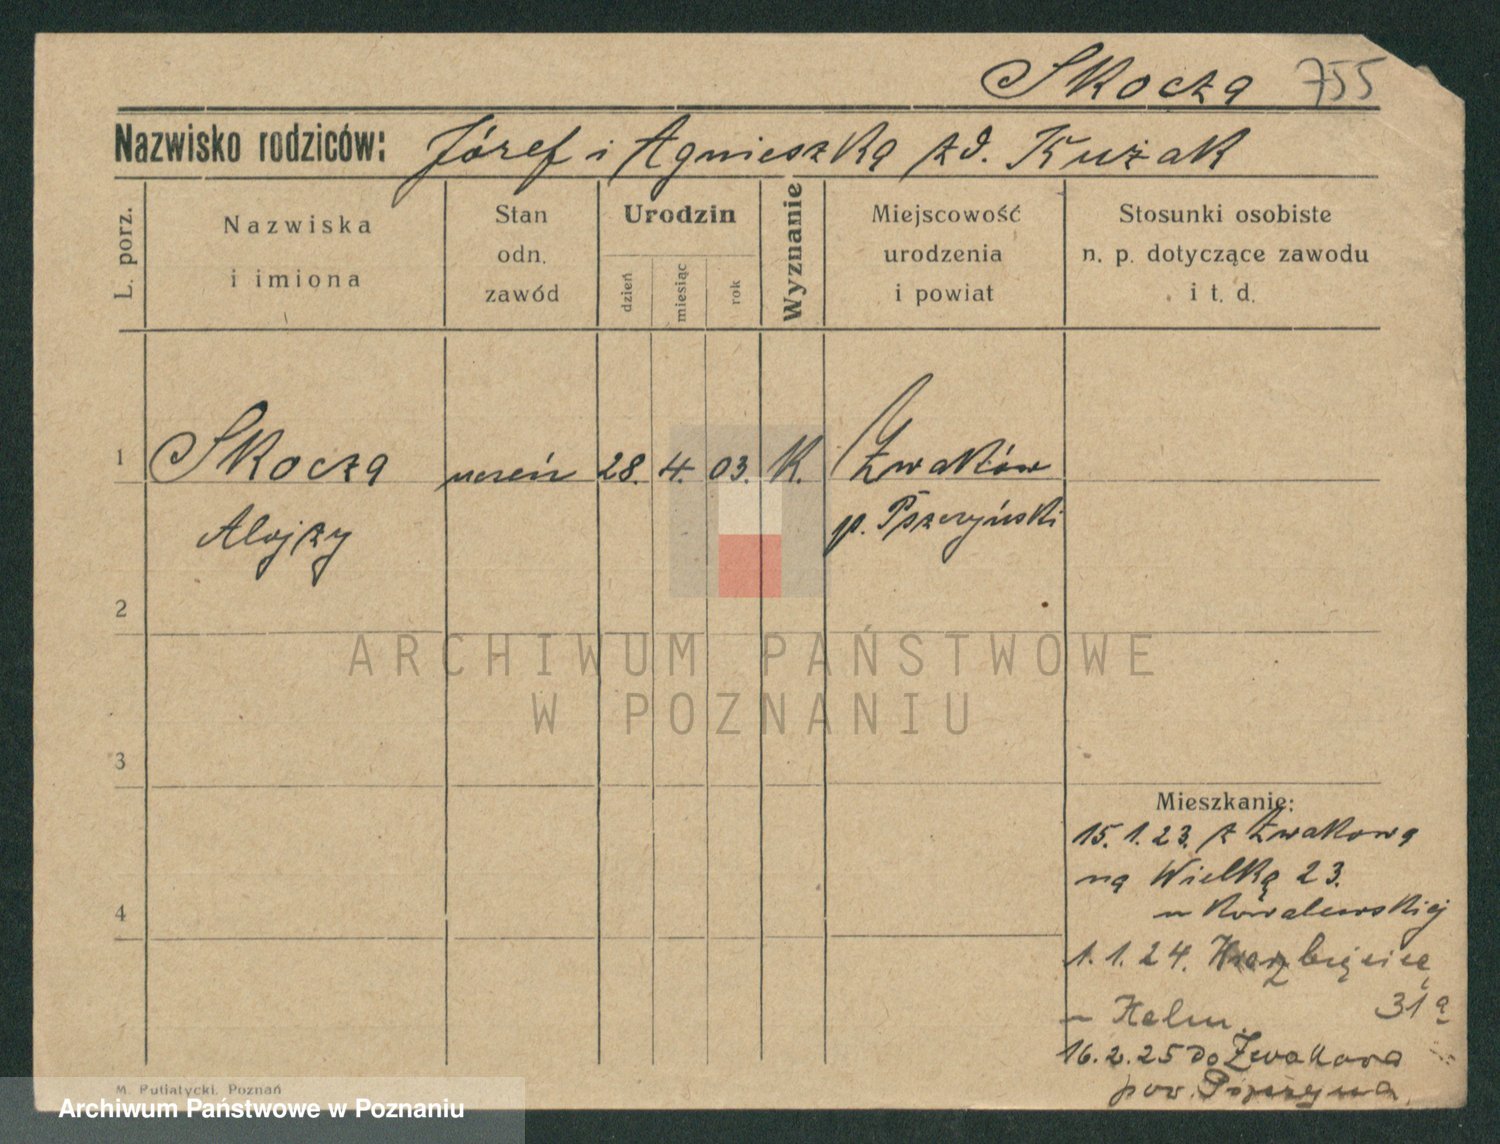 Skocza 755
Nazwisko rodziców: Józef i Agnieszka zd. Kużak
L. porz.
Nazwiska
i imiona
Stan
odn.
zawód
Urodzin
dzień
miesiąc
rok
Wyznanie
Miejscowość
urodzenia
i powiat
Stosunki osobiste
n. p. dotyczące zawodu
i t. d.
1 Skocza uczeń 28. 4. 03. K. Żwaków
Alojzy p. Pszczyński
2
3
4
Mieszkanie:
15.1.23. z Żwakowa
na Wielką 23.
u Kowalewskiej
1.1.24. Wierzbięcice
31a
u Helm.
16.2.25 do Żwakowa
pow. Pszczyna
M. Putiatycki, Poznań
ARCHIWUM PAŃSTWOWE
W POZNANIU
Archiwum Państwowe w Poznaniu